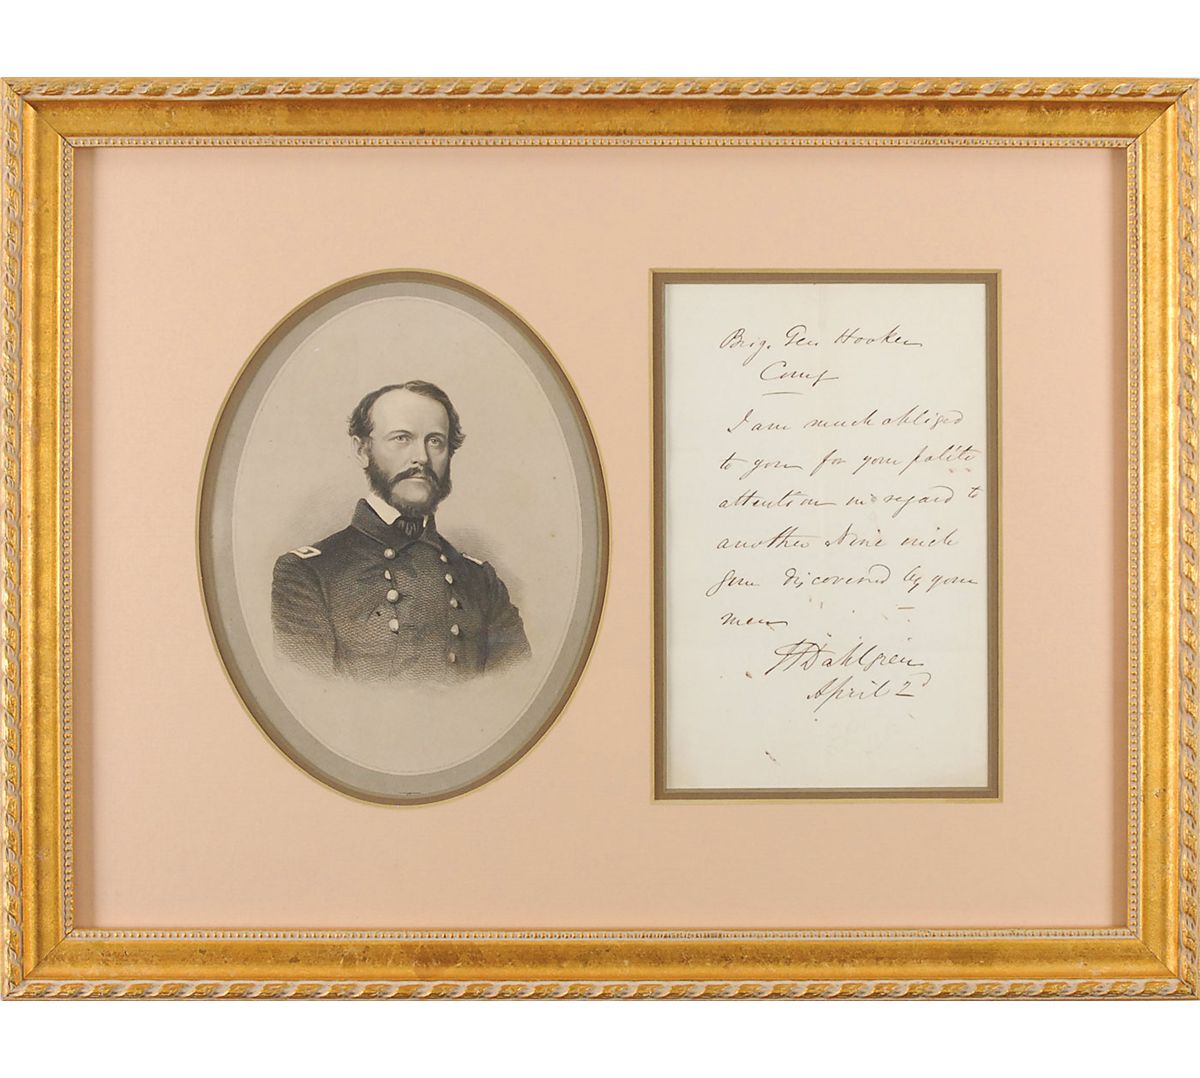 Brig. Gen Hooker
Comg
I am much obliged
to you for your polite
attention in regard to
another Nine inch
gun discovered by your
men
JADahlgren
April 2d